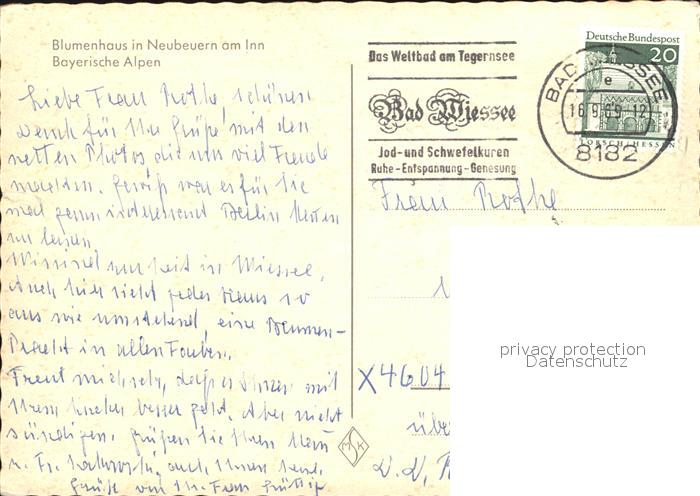 Blumenhaus in Neubeuern am Inn
Bayerische Alpen
Das Weltbad am Tegernsee
Bad Wiessee
Jod- und Schwefelkuren
Ruhe-Entspannung-Genesung
Deutsche Bundespost
20
LORSCH/HESSEN
BAD WIESSEE
e
16.9.69-12
8182
Liebe Frau Rothe, schönen
Dank für Ihre Grüße, mit den
netten Photos die uns viel Freude
machten. Gewiß war es für Sie
mal ganz interessant Berlin
Wir sind zur Zeit in Wiessee,
auch hier sieht jedes Haus so
aus wie umstehend, eine Blumen-
Pracht in allen Farben.
Freut mich sehr, daß es Ihnen mit
Ihrem besser geht. Aber nicht
sündigen. grüßen Sie Ihren
u. Fr. auch Ihnen
Grüße von
Frau Rothe
X4604
über
privacy protection
Datenschutz